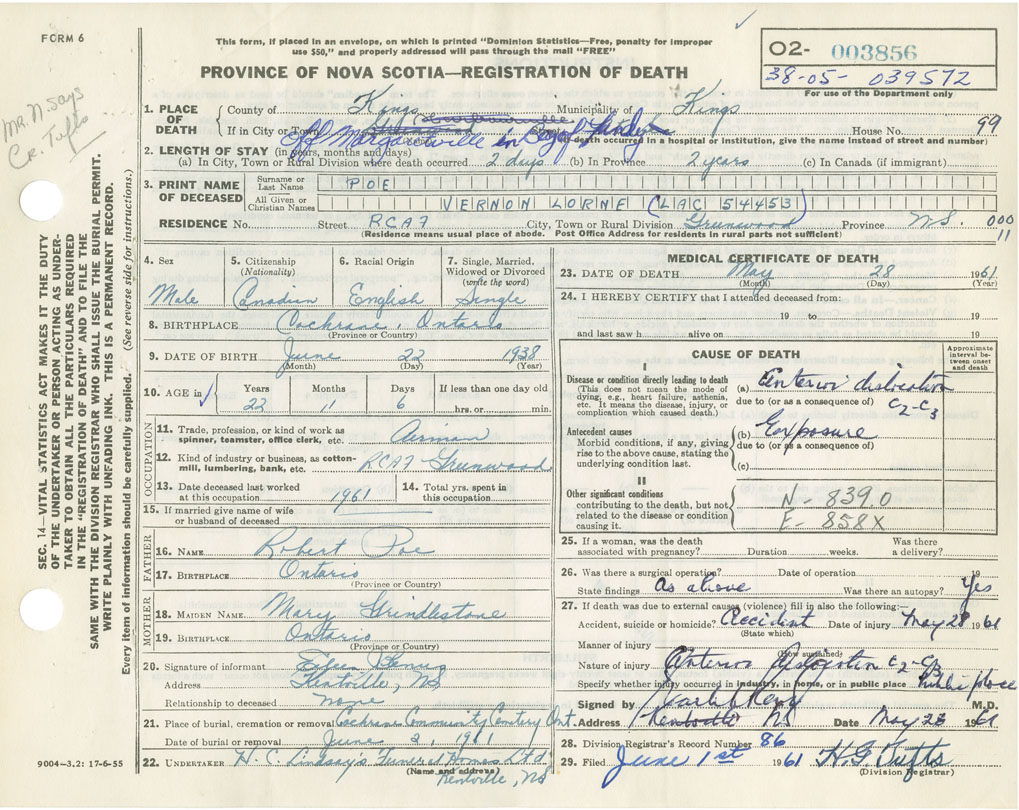 FORM 6
This form, if placed in an envelope, on which is printed "Dominion Statistics—Free, penalty for improper
use $50," and properly addressed will pass through the mail "FREE"
PROVINCE OF NOVA SCOTIA—REGISTRATION OF DEATH
O2- 003856
38-05- 039572
For use of the Department only
Mr. N says
Cr. Tufts
SEC. 14—VITAL STATISTICS ACT MAKES IT THE DUTY
OF THE UNDERTAKER OR PERSON ACTING AS UNDER-
TAKER TO OBTAIN ALL THE PARTICULARS REQUIRED
IN THE "REGISTRATION OF DEATH" AND TO FILE THE
SAME WITH THE DIVISION REGISTRAR WHO SHALL ISSUE THE BURIAL PERMIT.
WRITE PLAINLY WITH UNFADING INK. THIS IS A PERMANENT RECORD.
Every item of information should be carefully supplied. (See reverse side for instructions.)
1. PLACE OF DEATH
County of Kings Municipality of Kings
If in City or Town Off Margaretville in Street House No. 99
death occurred in a hospital or institution, give the name instead of street and number)
2. LENGTH OF STAY (in years, months and days)
(a) In City, Town or Rural Division where death occurred 2 days (b) In Province 2 years (c) In Canada (if immigrant)
3. PRINT NAME OF DECEASED
Surname or Last Name POE
All Given or Christian Names VERNON LORNE (LAC 54453)
RESIDENCE No. Street RCAF City, Town or Rural Division Greenwood Province NS. 000
11
(Residence means usual place of abode. Post Office Address for residents in rural parts not sufficient)
4. Sex Male
5. Citizenship (Nationality) Canadian
6. Racial Origin English
7. Single, Married, Widowed or Divorced (write the word) Single
8. BIRTHPLACE Cochrane, Ontario
(Province or Country)
9. DATE OF BIRTH June 22 1938
(Month) (Day) (Year)
10. AGE in Years 22 Months 11 Days 6 If less than one day old hrs. or min.
OCCUPATION
11. Trade, profession, or kind of work as spinner, teamster, office clerk, etc. Airman
12. Kind of industry or business, as cotton-mill, lumbering, bank, etc. RCAF Greenwood
13. Date deceased last worked at this occupation 1961
14. Total yrs. spent in this occupation
15. If married give name of wife or husband of deceased
FATHER
16. NAME Robert Poe
17. BIRTHPLACE Ontario
(Province or Country)
MOTHER
18. MAIDEN NAME Mary Grindlestone
19. BIRTHPLACE Ontario
(Province or Country)
20. Signature of informant Eileen
Address Kentville, NS
Relationship to deceased none
21. Place of burial, cremation or removal Cochrane Community Cemetery Ont.
Date of burial or removal June 2, 1961
22. UNDERTAKER H. C. Lindsay's Funeral Homes Ltd
(Name and address)
Kentville, NS
9004—3.2: 17-6-55
MEDICAL CERTIFICATE OF DEATH
23. DATE OF DEATH May 28 1961
(Month) (Day) (Year)
24. I HEREBY CERTIFY that I attended deceased from:
19 to 19
and last saw h alive on 19
CAUSE OF DEATH
Approximate interval between onset and death
I
Disease or condition directly leading to death
(This does not mean the mode of dying, e.g., heart failure, asthenia, etc. It means the disease, injury, or complication which caused death.)
(a) Anterior dislocation
due to (or as a consequence of) C2-C3
Antecedent causes
Morbid conditions, if any, giving rise to the above cause, stating the underlying condition last.
(b) Exposure
due to (or as a consequence of)
(c)
II
Other significant conditions contributing to the death, but not related to the disease or condition causing it.
N - 839.0
E - 858X
25. If a woman, was the death associated with pregnancy? Duration weeks. Was there a delivery?
26. Was there a surgical operation? Date of operation 19
State findings As above Was there an autopsy? Yes
27. If death was due to external causes (violence) fill in also the following:
Accident, suicide or homicide? Accident Date of injury May 28 1961
(State which)
Manner of injury
(How sustained)
Nature of injury Anterior dislocation C2-C3
Specify whether injury occurred in industry, in home, or in public place Public place
Signed by M.D.
Address Kentville NS Date May 1961
28. Division Registrar's Record Number 86
29. Filed June 1st 1961 H. G. Tufts
(Division Registrar)